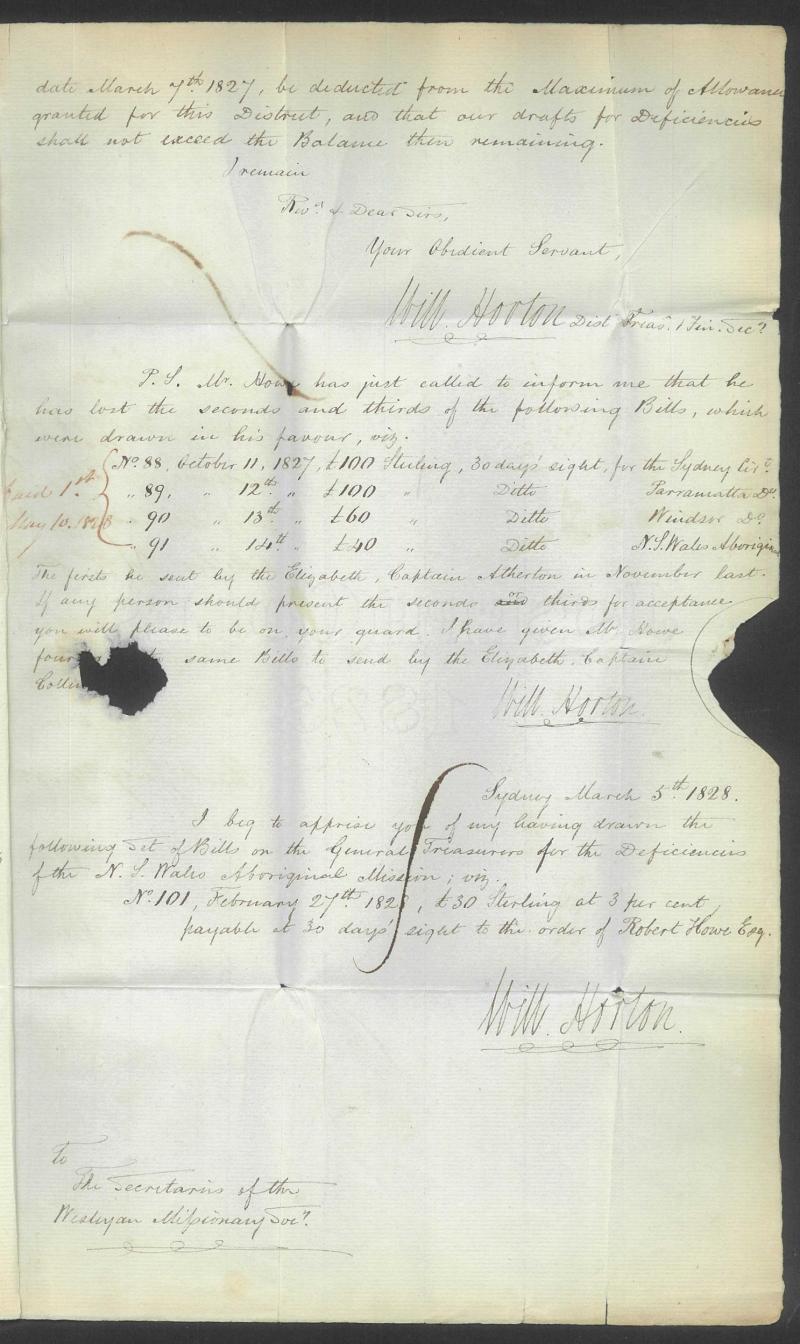 date March 7th 1827, be deducted from the Maximum of Allowance
granted for this District, and that our drafts for Deficiencies
shall not exceed the Balance then remaining.
I remain
Revd & Dear Sirs,
Your Obedient Servant,
Will. Horton Dist Treasr & Fin. Secy
P.S. Mr. Howe has just called to inform me that he
has lost the seconds and thirds of the following Bills, which
were drawn in his favour, viz.
No. 88, October 11, 1827, £100 Sterling, 30 days' sight, for the Sydney Cirt
" 89, " 12th " £100 " Ditto Parramatta Do
" 90 " 13th " £60 " Ditto Windsor Do
" 91 " 14th " £40 " Ditto N.S. Wales Aborigin
paid 1st
May 10. 1828
The firsts he sent by the Elizabeth, Captain Atherton in November last.
If any person should present the seconds and or thirds for acceptance
you will please to be on your guard. I have given Mr. Howe
four same Bills to send by the Elizabeth Captain
Will. Horton.
Sydney March 5th 1828.
I beg to apprise you of my having drawn the
following Set of Bills on the General Treasurers for the Deficiencies
of the N. S. Wales Aboriginal Mission; viz.
No. 101, February 27th 1828, £30 Sterling at 3 per cent,
payable at 30 days' sight to the order of Robert Howe Esq.
Will. Horton.
To
The Secretaries of the
Wesleyan Missionary Socy.